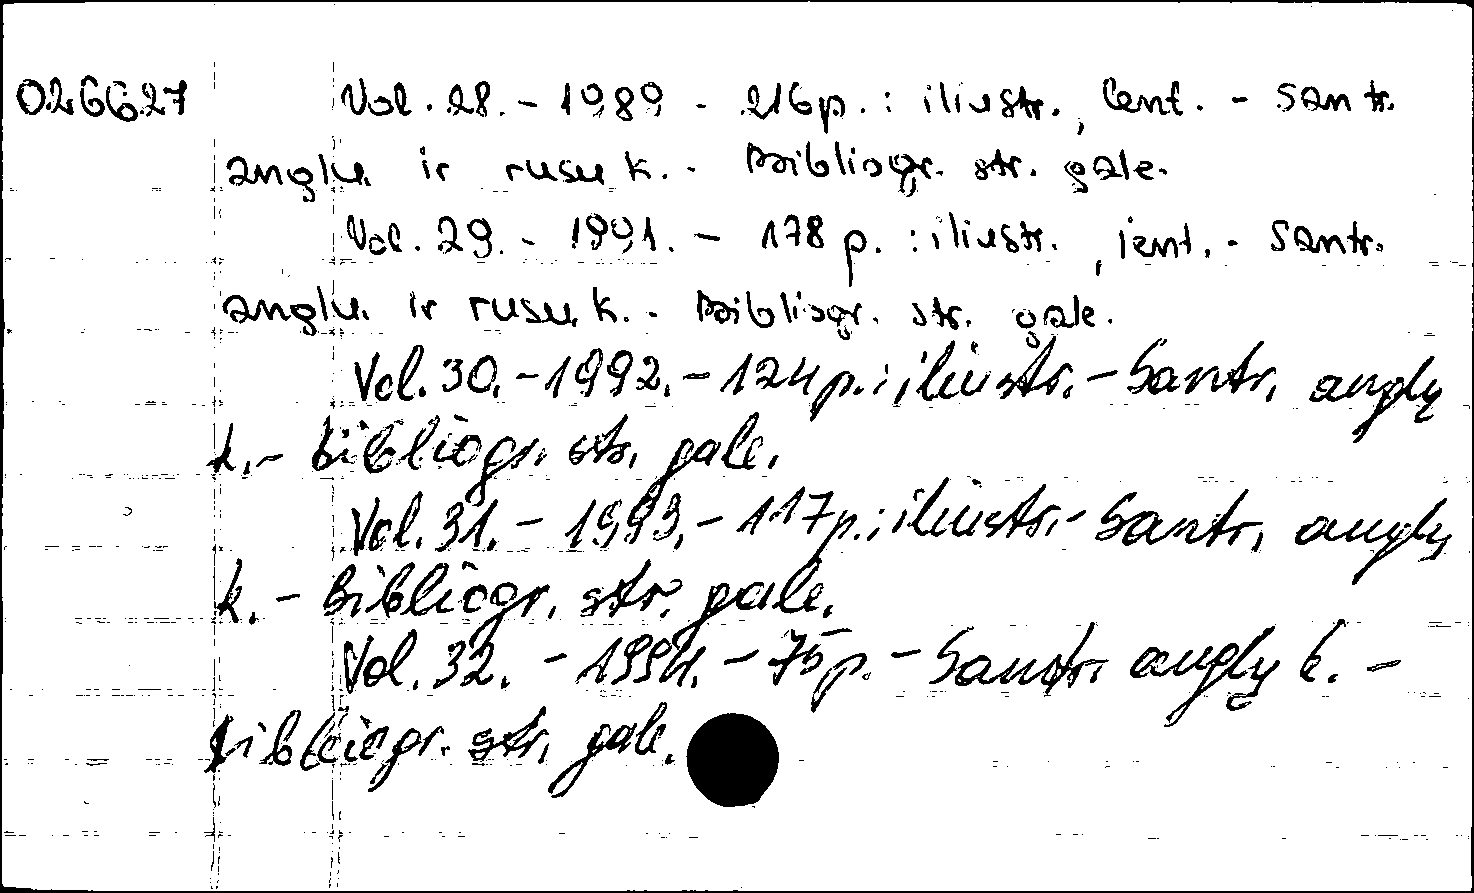 026627 Vol. 28. - 1989 - 216 p. : iliustr., lent. - Santr.
anglų ir rusų k. - Bibliogr. str. gale.
Vol. 29. - 1991. - 178 p. : iliustr., lent. - Santr.
anglų ir rusų k. - Bibliogr. str. gale.
Vol. 30. - 1992. - 124 p. : iliustr. - Santr. anglų
k. - Bibliogr. str. gale.
Vol. 31. - 1993. - 117 p. : iliustr. - Santr. anglų
k. - Bibliogr. str. gale.
Vol. 32. - 1994. - 75 p. - Santr. anglų k. -
Bibliogr. str. gale.